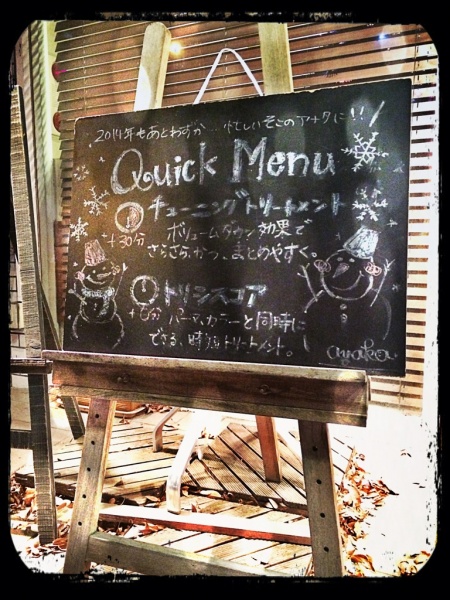 2014年もあとわずか… 忙しいそこのアナタに!!
Quick Menu
チューニングトリートメント
+30分 ボリュームダウン効果で
さらさら、かつ、まとめやすく。
トリシスコア
+0分 パーマ、カラーと同時に
できる、時短トリートメント。
ayaka